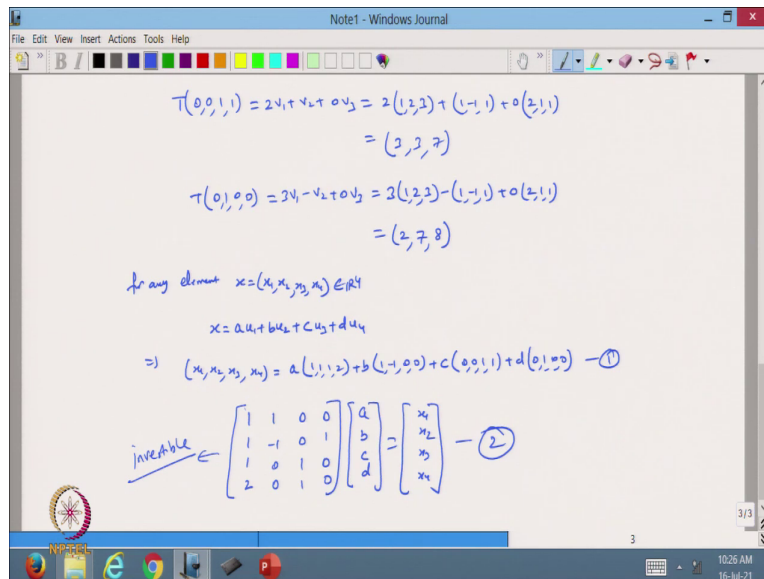 Note1 - Windows Journal
File Edit View Insert Actions Tools Help
B I
T(0,0,1,1) = 2v₁+v₂+0v₃ = 2(1,2,3)+(1,-1,1)+0(2,1,1)
= (3,3,7)
T(0,1,0,0) = 3v₁-v₂+0v₃ = 3(1,2,3)-(1,-1,1)+0(2,1,1)
= (2,7,8)
for any element x=(x₁,x₂,x₃,x₄)∈ℝ4
x=au₁+bu₂+cu₃+du₄
⇒ (x₁,x₂,x₃,x₄) = a(1,1,1,2)+b(1,-1,0,0)+c(0,0,1,1)+d(0,1,0,0) —①
invertible ← [1 1 0 0] [a] = [x₁] — ②
[1 -1 0 1] [b] [x₂]
[1 0 1 0] [c] [x₃]
[2 0 1 0] [d] [x₄]
3/3
3
NPTEL
10:26 AM
16-Jul-21